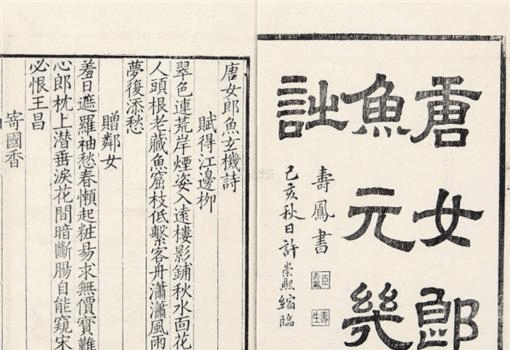 唐女郎
魚元幾
詩
壽鳳書
己亥秋日許崇熙縮臨
唐女郎魚玄機詩
賦得江邊柳
翠色連荒岸煙姿入遠樓影鋪秋水面花
人頭根老藏魚窟枝低繫客舟瀟瀟風雨
夢復添愁
贈鄰女
羞日遮羅袖愁春懶起粧易求無價寶難
心郎枕上潛垂淚花間暗斷腸自能窺宋
必恨王昌
寄國香